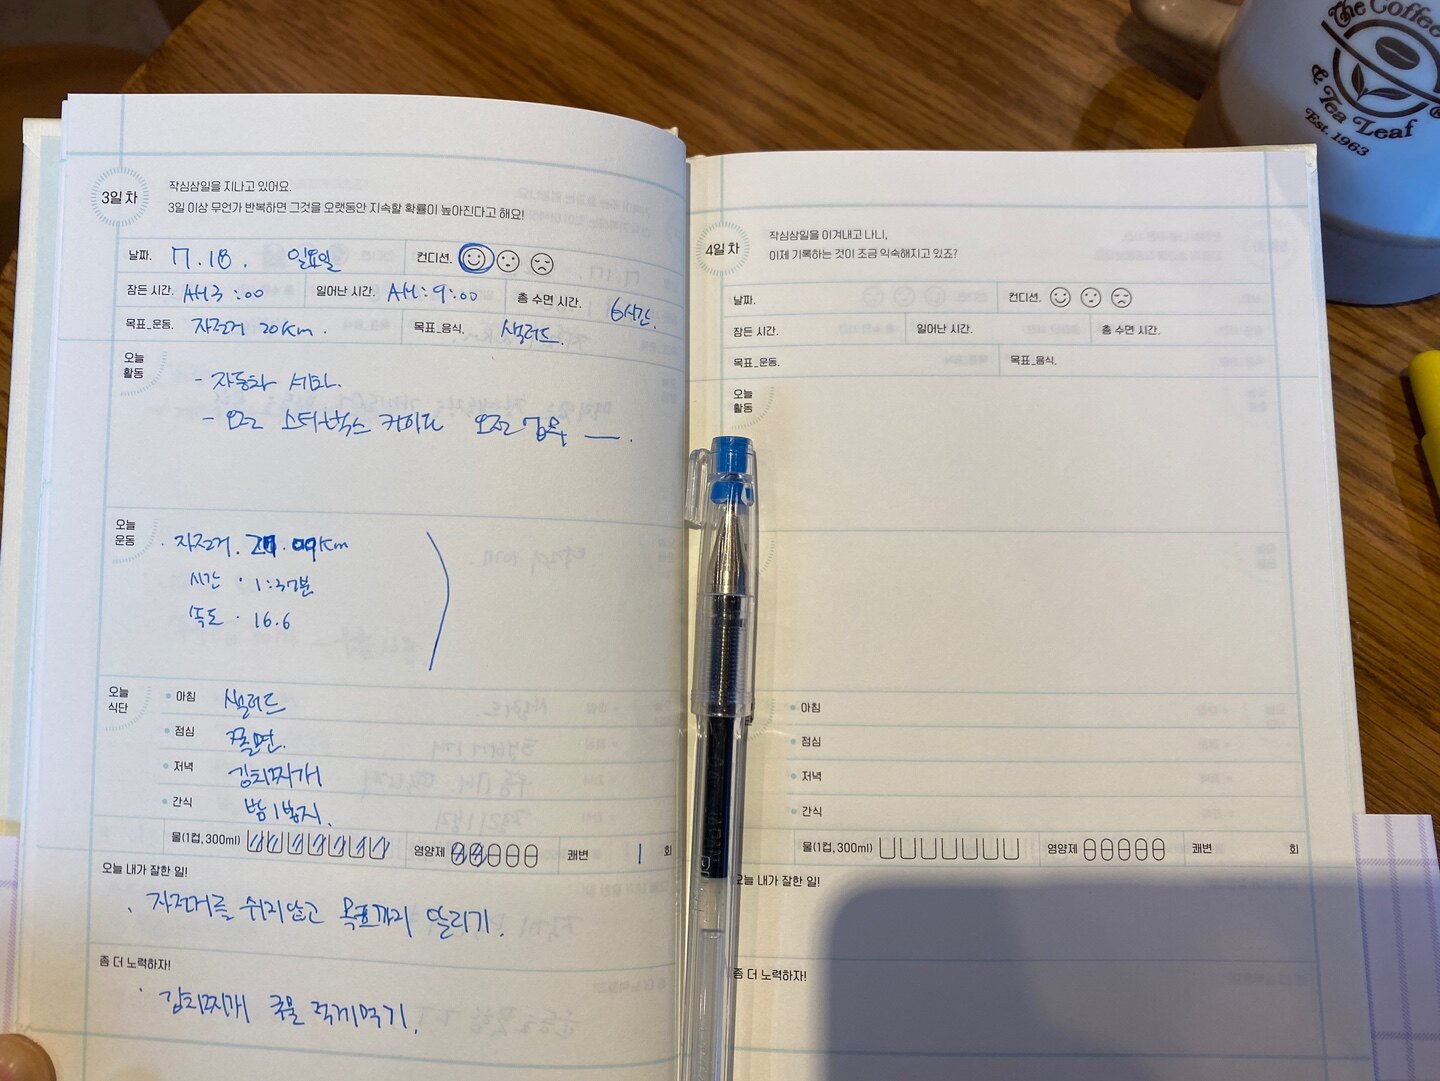 The Coffee
& Tea Leaf
®
Est. 1963
3일 차
작심삼일을 지나고 있어요.
3일 이상 무언가 반복하면 그것을 오랫동안 지속할 확률이 높아진다고 해요!
날짜. 7.18. 일요일 컨디션.
잠든 시간. AM 3:00 일어난 시간. AM:9:00 총 수면 시간. 6시간.
목표_운동. 자전거 20km. 목표_음식. 샐러드.
오늘
활동
- 자동차 세차.
- 오전 스타벅스 커피
오늘
운동
자전거. km
시간 · 1:37분
속도 · 16.6
오늘
식단
아침 샐러드
점심 쫄면.
저녁 김치찌개
간식 밤1봉지.
물(1컵, 300ml) 영양제 쾌변 1 회
오늘 내가 잘한 일!
자전거를 쉬지않고 목표까지 달리기.
좀 더 노력하자!
김치찌개 국물 적게먹기.
4일 차
작심삼일을 이겨내고 나니,
이제 기록하는 것이 조금 익숙해지고 있죠?
날짜. 컨디션.
잠든 시간. 일어난 시간. 총 수면 시간.
목표_운동. 목표_음식.
오늘
활동
아침
점심
저녁
간식
물(1컵, 300ml) 영양제 쾌변 회
오늘 내가 잘한 일!
좀 더 노력하자!